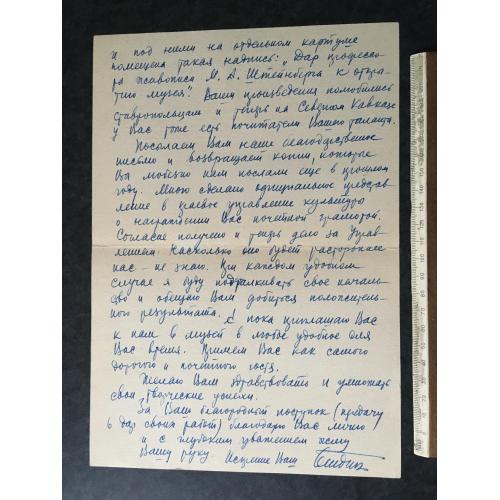 и под ними на отдельном картуше
помещена такая надпись: „Дар профессо-
ра живописи М. Д. Штейнберга к откры-
тию музея." Ваши произведения полюбились
ставропольцам и теперь на Северном Кавказе
у Вас тоже есть почитатели Вашего таланта.
Посылаем Вам наше благодарственное
письмо и возвращаем копии, которые
Вы любезно нам послали еще в прошлом
году. Мною сделано официальное представ-
ление в краевое управление культуры
о награждении Вас почетной грамотой.
Согласие получено и теперь дело за Управ-
лением. Насколько оно будет расторопнее
нас – не знаю. При каждом удобном
случае я буду подталкивать свое началь-
ство и обещаю Вам добиться положитель-
ного результата. А пока приглашаю Вас
к нам в музей в любое удобное для
Вас время. Примем Вас как самого
дорогого и почетного гостя.
Желаю Вам здравствовать и умножать
свои творческие успехи.
За Ваш благородный поступок (передачу
в дар своих работ) благодарю Вас лично
и с глубоким уважением жму
Вашу руку Искренне Ваш